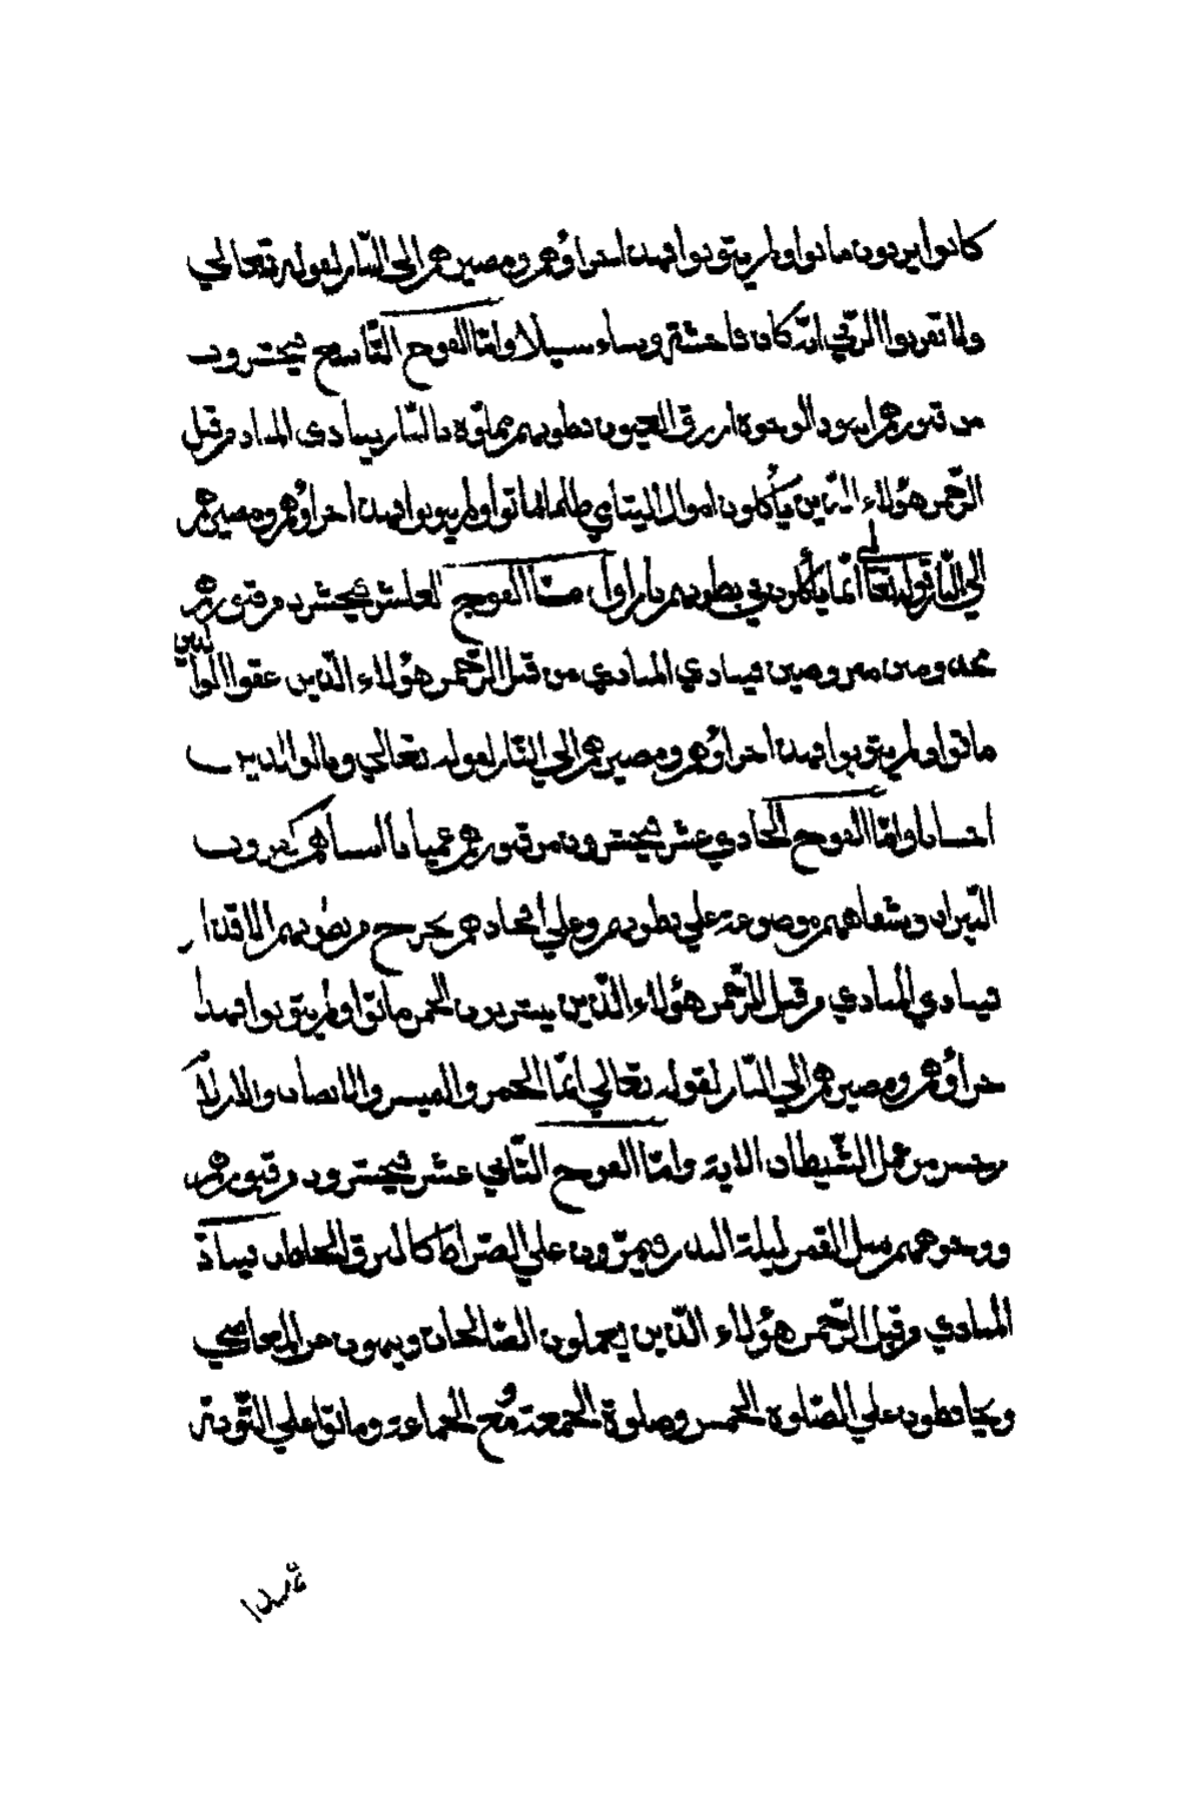 كانوا يزنون ماتوا ولم يتوبوا فهذا جزاؤهم ومصيرهم الي النار لقوله تعالي
ولا تقربوا الزني انه كان فاحشة وساء سبيلا واما الفوج التاسع فيحشرون
من قبورهم اسود الوجوه ازرق العيون بطونهم مملوة بالنار ينادي المناد من قبل
الرحمن هؤلاء الذين يأكلون اموال اليتامي ظلما ماتوا ولم يتوبوا فهذا جزاؤهم ومصيرهم
الي النار لقوله تعالي انما يأكلون في بطونهم نارا واما الفوج العاشر فيحشرون من قبورهم
مجذومين مبروصين فينادي المنادي من قبل الرحمن هؤلاء الذين عقوا الوالدين
ماتوا ولم يتوبوا فهذا جزاؤهم ومصيرهم الي النار لقوله تعالي وبالوالدين
احسانا واما الفوج الحادي عشر فيحشرون من قبورهم عميانا اسنانهم كقرون
الثيران وشفاههم موضوعة علي بطونهم وعلي افخاذهم يخرج من بطونهم الاقذار
فينادي المنادي من قبل الرحمن هؤلاء الذين يشربون الخمر ماتوا ولم يتوبوا فهذا
جزاؤهم ومصيرهم الي النار لقوله تعالي انما الخمر والميسر والانصاب والازلام
رجس من عمل الشيطان الاية واما الفوج الثاني عشر فيحشرون من قبورهم
ووجوههم مثل القمر ليلة البدر فيمرون علي الصراط كالبرق الخاطف فيناد
المنادي من قبل الرحمن هؤلاء الذين يعملون الصالحات وينهون عن المعاصي
ويحافظون علي الصلوة الخمس وصلوة الجمعة مع الجماعة وماتوا علي التوبة